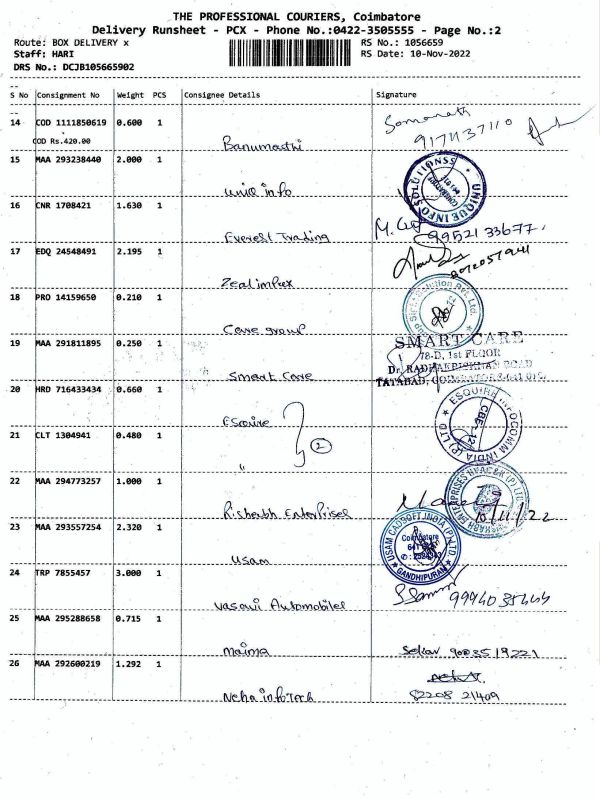 THE PROFESSIONAL COURIERS, Coimbatore
Delivery Runsheet - PCX - Phone No.:0422-3505555 - Page No.:2
Route: BOX DELIVERY x RS No.: 1056659
Staff: HARI RS Date: 10-Nov-2022
DRS No.: DCJB105665902
S No Consignment No Weight PCS Consignee Details Signature
14 COD 1111850619 0.600 1
COD Rs.420.00
Banumathi
15 MAA 293238440 2.000 1
UNIQUE INFO SOLUTIONSS
Uniq info
16 CNR 1708421 1.630 1
Everest Trading 9952133677
17 EDQ 24548491 2.195 1
Zeal impex
18 PRO 14159650 0.210 1
Care group
19 MAA 291811895 0.250 1
SMART CARE
78-D, 1st FLOOR
Dr. RADHAKRISHNAN ROAD
TATABAD, COIMBATORE
Smart Care
20 HRD 716433434 0.660 1
ESQUIRE INFOCOMM INDIA (P) LTD
CBE-12
Esquire
2
21 CLT 1304941 0.480 1
"
22 MAA 294773257 1.000 1
ENTERPRISES HVAC&R (P) LTD
10/11/22
Rishabh Enterprises
23 MAA 293557254 2.320 1
USAM CADSOFT INDIA (P) LTD
Coimbatore
GANDHIPURAM
Usam
24 TRP 7855457 3.000 1
Vasavi Automobiles
25 MAA 295288658 0.715 1
maima Sekar
26 MAA 292600219 1.292 1
Neha infotech 82208 21409